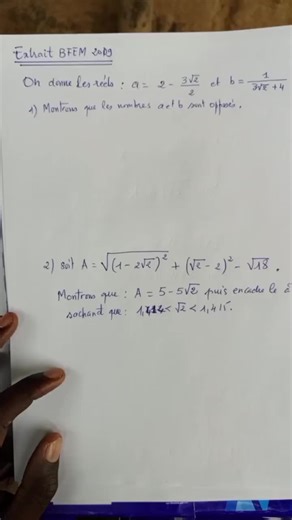 Extrait BFEM 2019
On donne les réels : a = 2 - 3√2/2 et b = 1/(3√2 + 4)
1) Montrons que les nombres a et b sont opposés.
2) soit A = √(1 - 2√2)² + (√2 - 2)² - √18 .
Montrons que : A = 5 - 5√2 puis encadre le à
sachant que : 1,414 < √2 < 1,415.